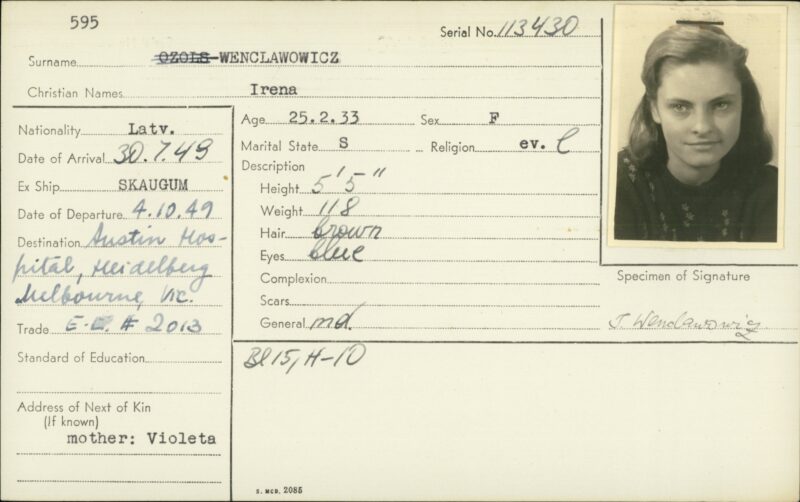 595
Serial No. 113430
Surname OZOLS WENCLAWOWICZ
Christian Names Irena
Nationality Latv.
Date of Arrival 30.7.49
Ex Ship SKAUGUM
Date of Departure 4.10.49
Destination Austin Hos-
pital, Heidelberg
Melbourne, Vic.
Trade E.C. # 2013
Standard of Education
Address of Next of Kin
(If known)
mother: Violeta
Age 25.2.33 Sex F
Marital State S Religion ev. l
Description
Height 5'5"
Weight 118
Hair brown
Eyes blue
Complexion
Scars
General md.
Bl 15, H-10
S. MCB. 2085
Specimen of Signature
J. Wenclawowicz